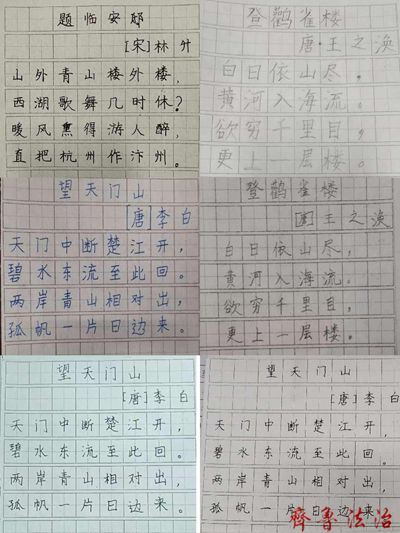 题临安邸
[宋]林外
山外青山楼外楼，
西湖歌舞几时休？
暖风熏得游人醉，
直把杭州作汴州。
登鹳雀楼
唐·王之涣
白日依山尽。
黄河入海流。
欲穷千里目，
更上一层楼。
望天门山
[唐]李白
天门中断楚江开，
碧水东流至此回。
两岸青山相对出，
孤帆一片日边来。
登鹳雀楼
[唐]王之涣
白日依山尽，
黄河入海流。
欲穷千里目，
更上一层楼。
望天门山
[唐]李白
天门中断楚江开，
碧水东流至此回。
两岸青山相对出，
孤帆一片日边来。
望天门山
[唐]李白
天门中断楚江开，
碧水东流至此回。
两岸青山相对出，
孤帆一片日边来
齊魯法治